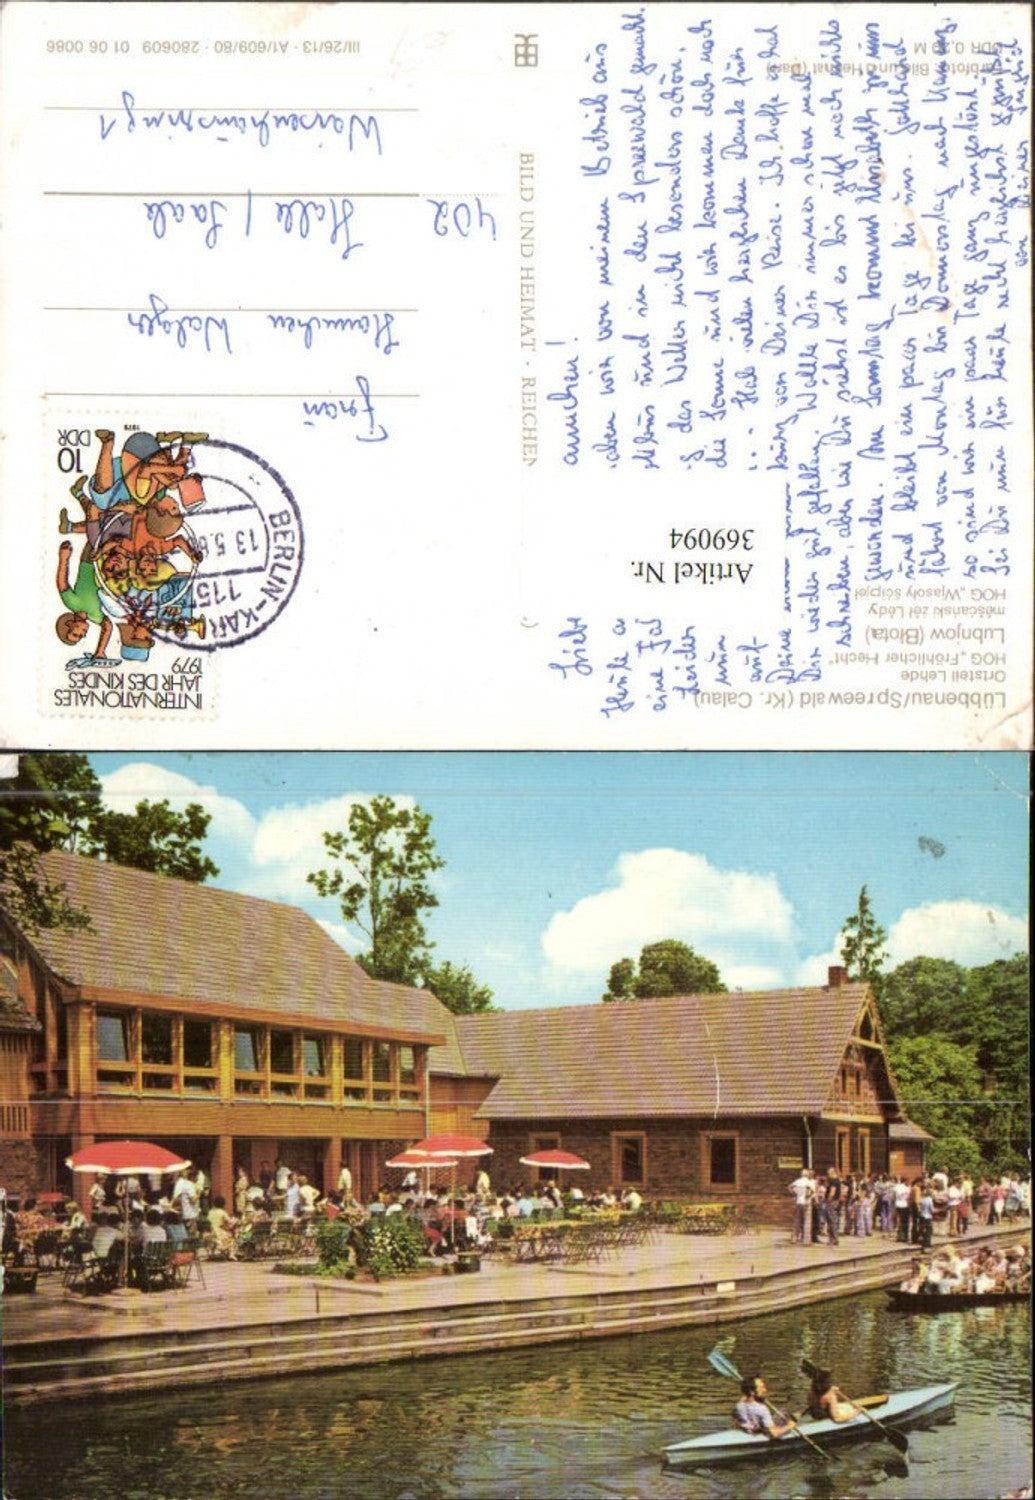 Lübbenau/Spreewald (Kr. Calau)
Ortsteil Lehde
HOG „Fröhlicher Hecht“
Lubnjow (Błota)
měsćański źěl Lědy
HOG „Wjasoły šćipjel“
Artikel Nr.
369094
BILD UND HEIMAT · REICHEN
INTERNATIONALES
JAHR DES KINDES
1979
10
DDR
1979
BERLIN-KARL
115
13.5.8
Frau
Hannchen Walger
402
Halle / Saale
Waisenhausring 1
III/26/13 · A1/609/80 · 280609 01 06 0086
Farbfoto: Bild und Heimat
M
Liebe annchen!
Heute haben wir von meinem Betrieb aus
eine Fahrt mit Bus und in den Spreewald gemacht.
Leider das Wetter nicht besonders schön.
nun die Sonne und wir kommen doch noch
auf Hab vielen herzlichen Dank für
Deine von Deiner Reise. Ich hoffe es hat
Dir wieder gut gefallen. Wollte Dir immer schon mal
schreiben, aber wie Du siehst ist es bis jetzt noch nichts
geworden. Am Sonntag kommt Elisabeth zu uns
und bleibt ein paar Tage bei uns. Gotthard
fährt von Montag bis Donnerstag nach
so sind wir ein paar Tage ganz ungestört.
Sei Du nun für heute recht herzlichst gegrüßt
von Deiner Ingrid